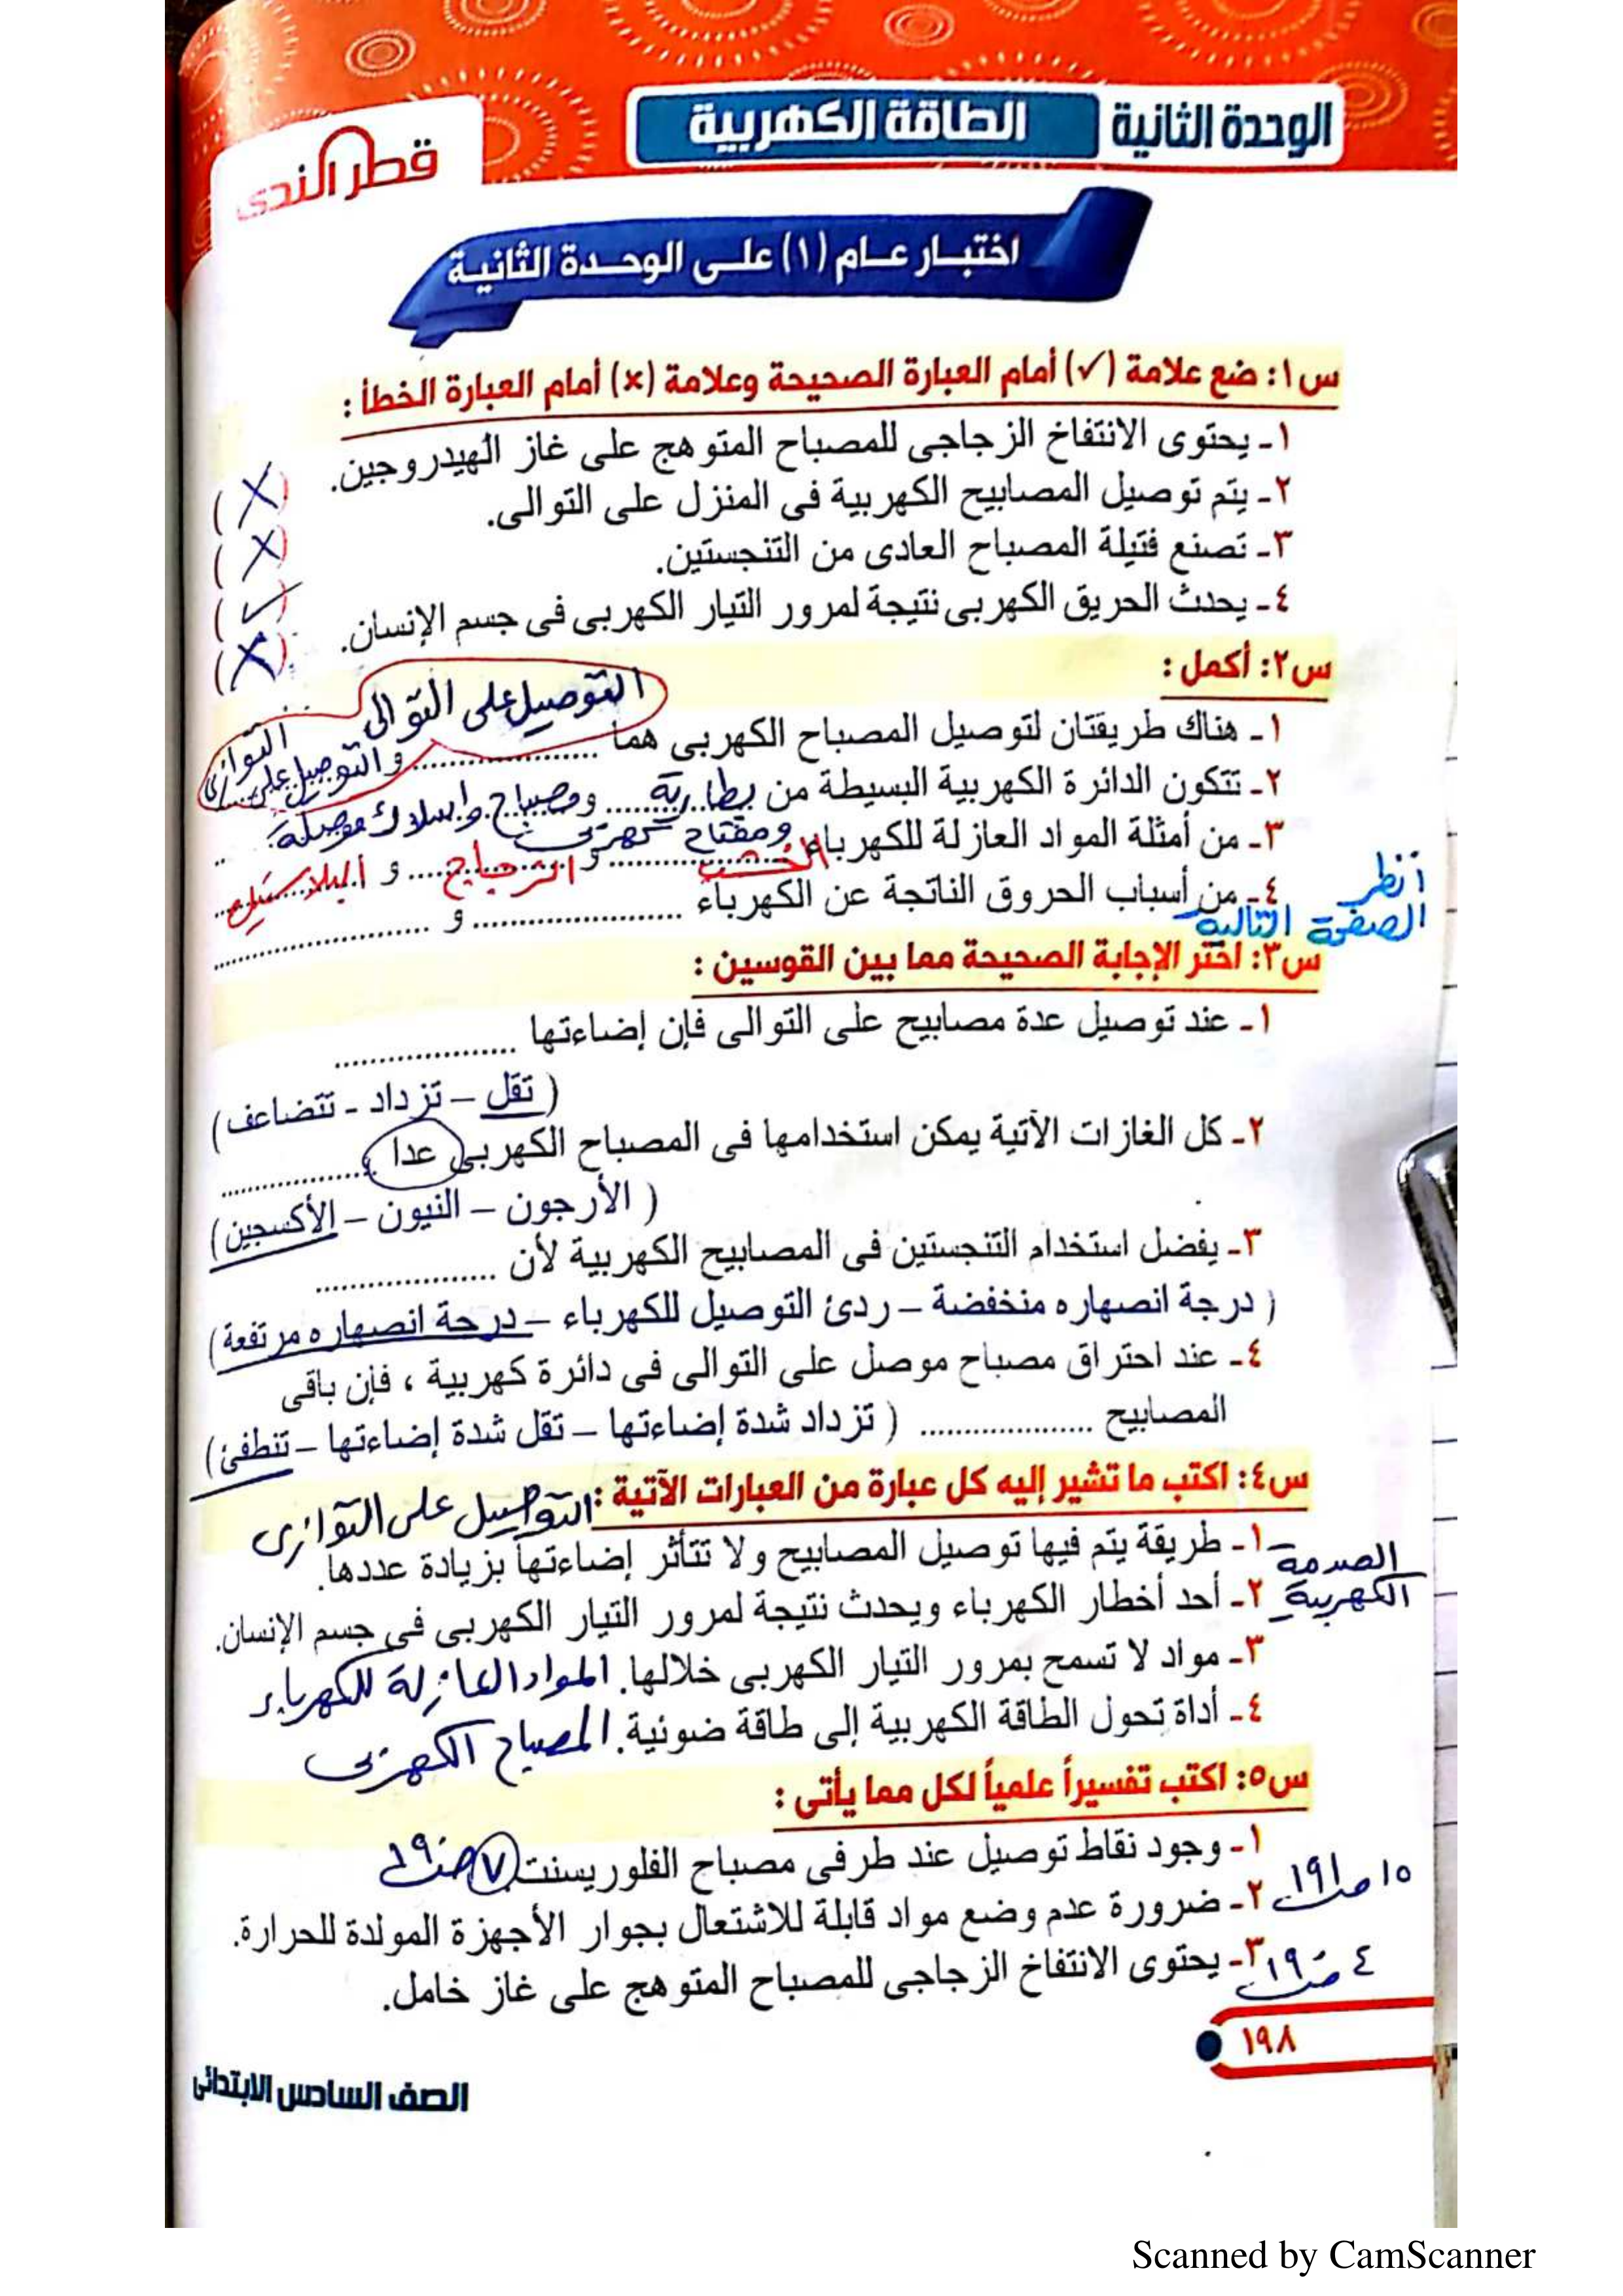 الوحدة الثانية الطاقة الكهربية
قطر الندى
اختبار عام (١) على الوحدة الثانية
س١: ضع علامة (✓) أمام العبارة الصحيحة وعلامة (×) أمام العبارة الخطأ :
١- يحتوى الانتفاخ الزجاجى للمصباح المتوهج على غاز الهيدروجين. (X)
٢- يتم توصيل المصابيح الكهربية فى المنزل على التوالى. (X)
٣- تصنع فتيلة المصباح العادى من التنجستين. (✓)
٤- يحدث الحريق الكهربى نتيجة لمرور التيار الكهربى فى جسم الإنسان. (X)
س٢: أكمل :
١- هناك طريقتان لتوصيل المصباح الكهربى هما التوصيل على التوالى والتوصيل على التوازى
٢- تتكون الدائرة الكهربية البسيطة من بطارية ومصباح واسلاك موصلة
ومفتاح كهربى
٣- من أمثلة المواد العازلة للكهرباء الخشب و الزجاج و البلاستيك
٤- من أسباب الحروق الناتجة عن الكهرباء .................... و ....................
أنظر
الصفحة التالية
س٣: اختر الإجابة الصحيحة مما بين القوسين :
١- عند توصيل عدة مصابيح على التوالى فإن إضاءتها ....................
( تقل – تزداد - تتضاعف)
٢- كل الغازات الآتية يمكن استخدامها فى المصباح الكهربى عدا ....................
( الأرجون – النيون – الأكسجين)
٣- يفضل استخدام التنجستين فى المصابيح الكهربية لأن ....................
( درجة انصهاره منخفضة – ردئ التوصيل للكهرباء – درجة انصهاره مرتفعة)
٤- عند احتراق مصباح موصل على التوالى فى دائرة كهربية ، فإن باقى
المصابيح .................... ( تزداد شدة إضاءتها – تقل شدة إضاءتها – تنطفئ)
س٤: اكتب ما تشير إليه كل عبارة من العبارات الآتية :
التوصيل على التوازى
١- طريقة يتم فيها توصيل المصابيح ولا تتأثر إضاءتها بزيادة عددها.
الصدمة
الكهربية
٢- أحد أخطار الكهرباء ويحدث نتيجة لمرور التيار الكهربى فى جسم الإنسان.
٣- مواد لا تسمح بمرور التيار الكهربى خلالها. المواد العازلة للكهرباء
٤- أداة تحول الطاقة الكهربية إلى طاقة ضوئية. المصباح الكهربى
س٥: اكتب تفسيراً علمياً لكل مما يأتى :
١- وجود نقاط توصيل عند طرفى مصباح الفلوريسنت. ٧ صـ ١٩٠
٢- ضرورة عدم وضع مواد قابلة للاشتعال بجوار الأجهزة المولدة للحرارة.
١٥ صـ ١٩١
٣- يحتوى الانتفاخ الزجاجى للمصباح المتوهج على غاز خامل.
٤ صـ ١٩٠
١٩٨
الصف السادس الابتدائى
Scanned by CamScanner